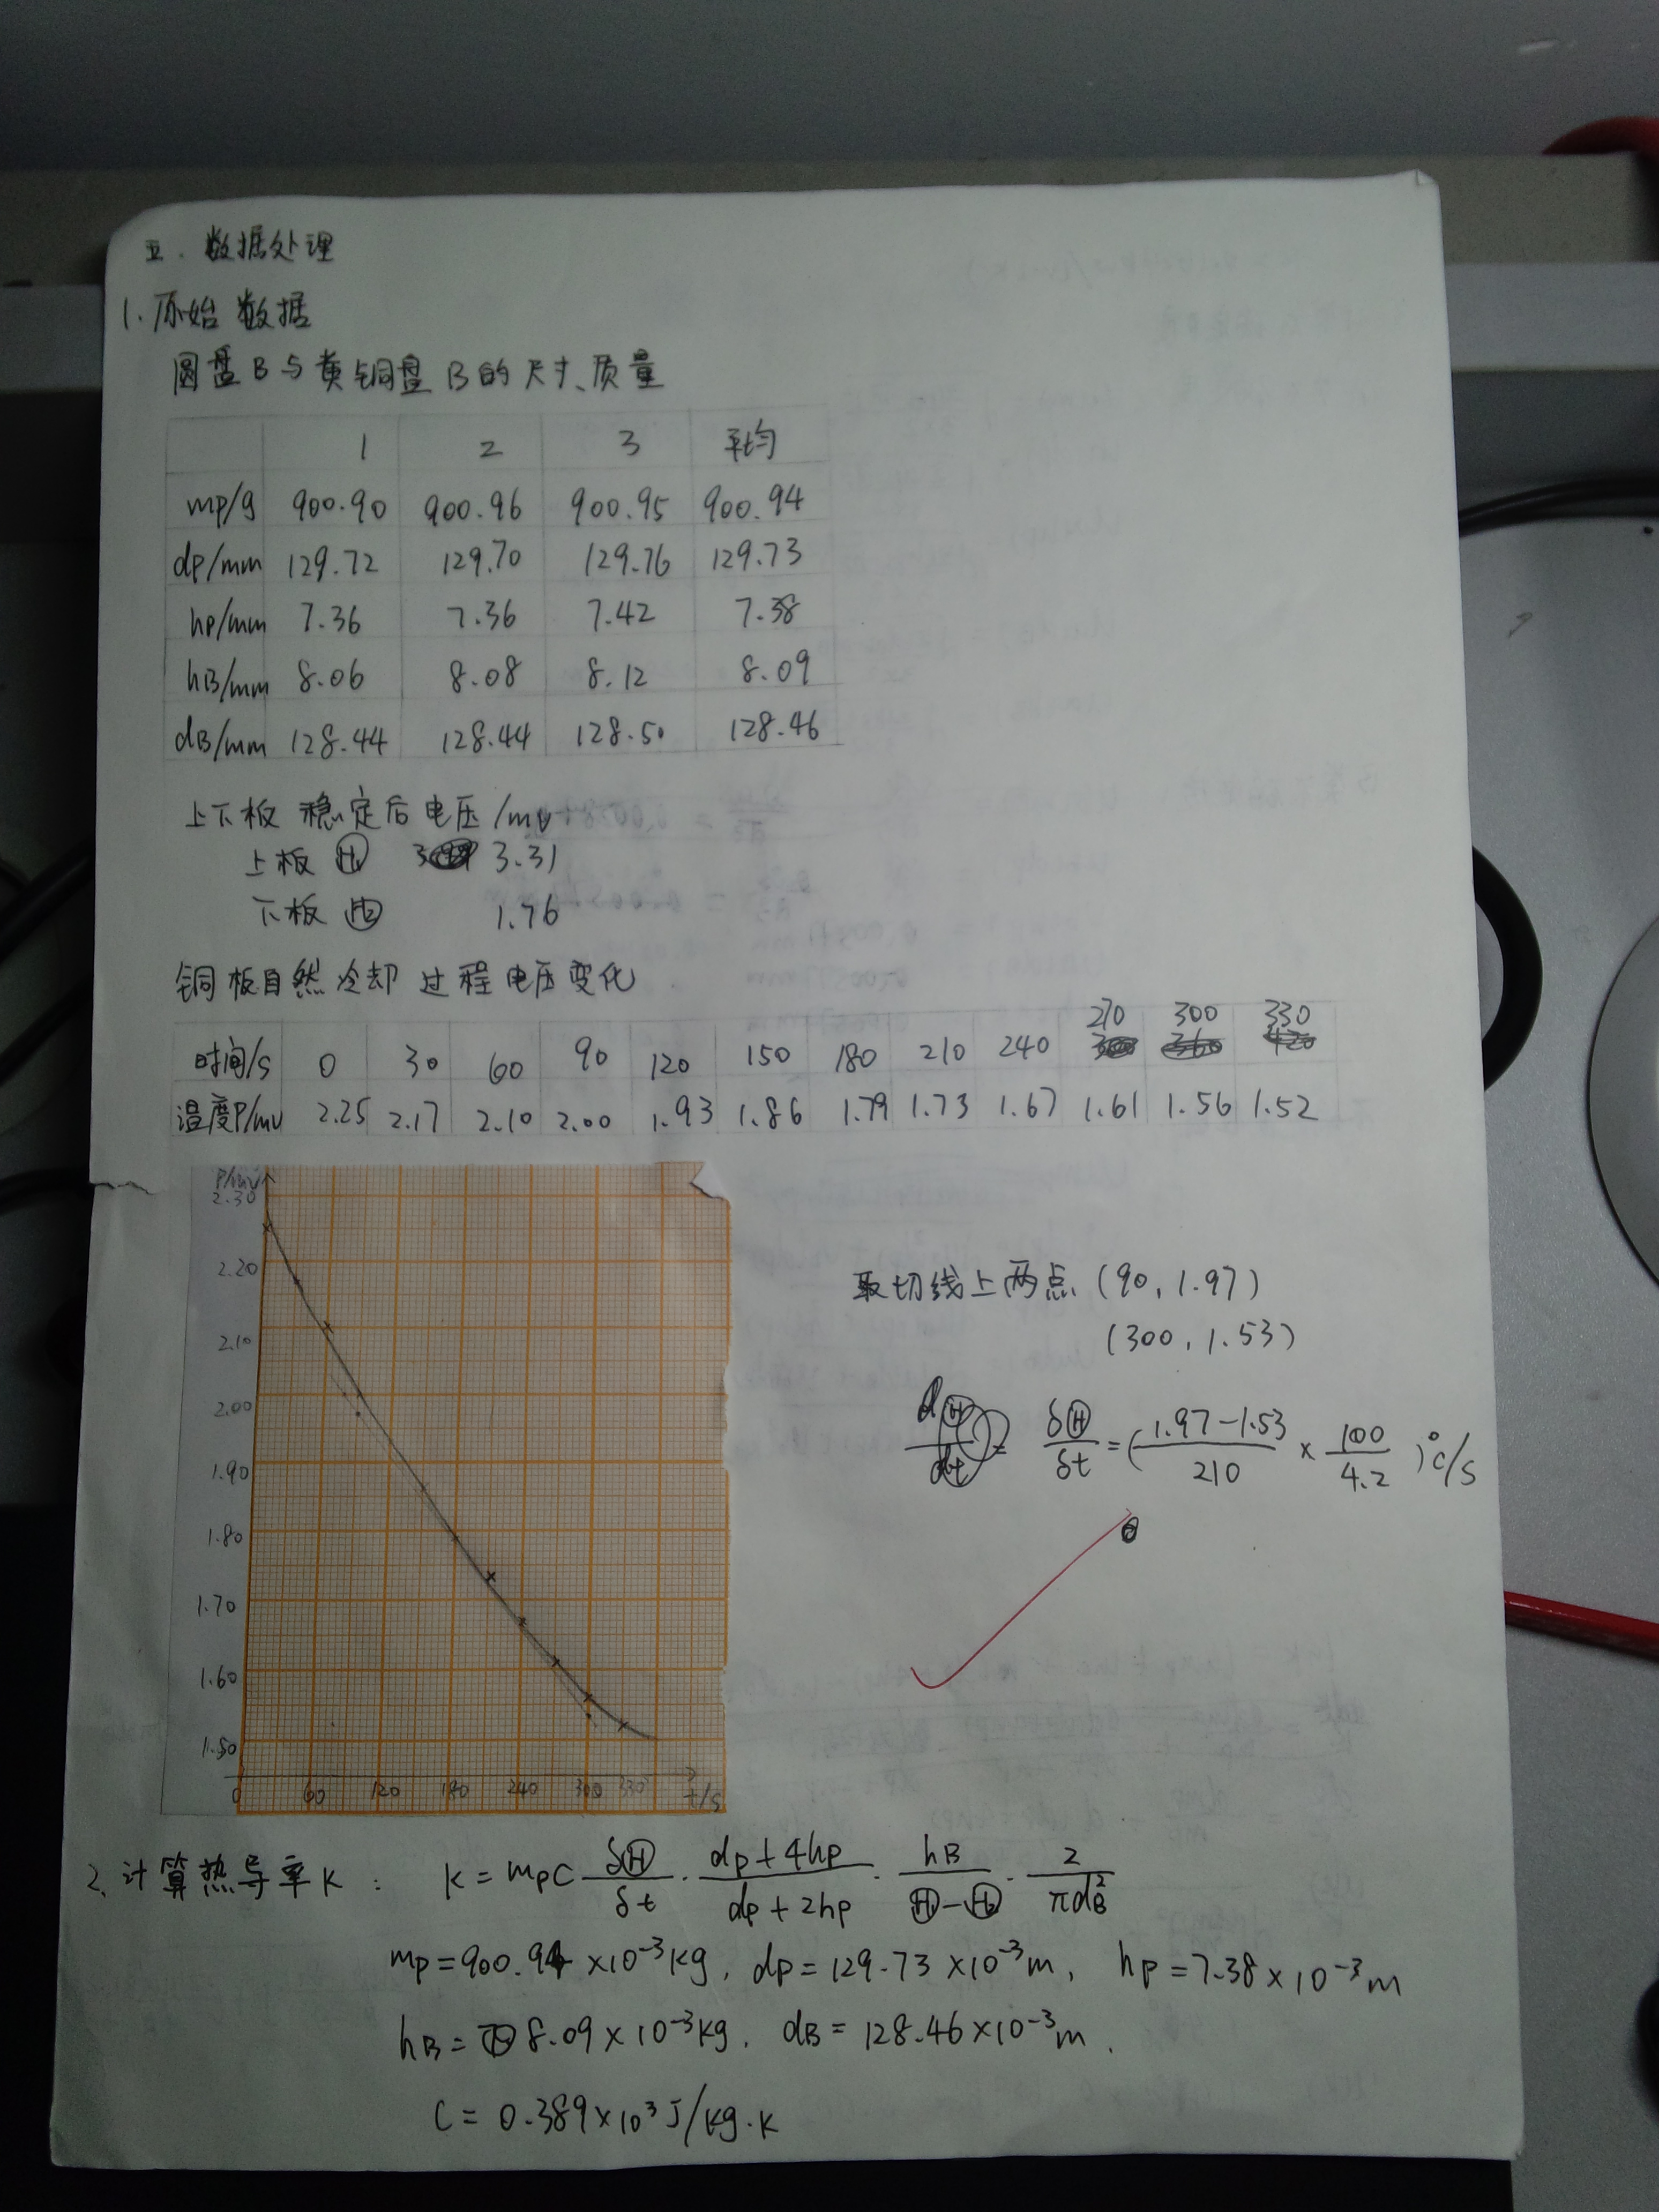 五. 数据处理
1. 原始数据
圆盘B与黄铜盘B的尺寸、质量
1 2 3 平均
mp/g 900.90 900.96 900.95 900.94
dp/mm 129.72 129.70 129.76 129.73
hp/mm 7.36 7.36 7.42 7.38
hB/mm 8.06 8.08 8.12 8.09
dB/mm 128.44 128.44 128.50 128.46
上下板稳定后电压/mv
上板 Ⓗ₁ 3.31
下板 Ⓗ₂ 1.76
铜板自然冷却过程电压变化
时间/s 0 30 60 90 120 150 180 210 240 270 300 330
温度P/mv 2.25 2.17 2.10 2.00 1.93 1.86 1.79 1.73 1.67 1.61 1.56 1.52
P/mv
2.30
2.20
2.10
2.00
1.90
1.80
1.70
1.60
1.50
0 60 120 180 240 300 330 t/s
取切线上两点 (90, 1.97)
(300, 1.53)
dⒽ/dt = δⒽ/δt = (1.97-1.53/210 × 100/4.2)°C/s
2. 计算热导率K: K = mpC δⒽ/δt · dp+4hp/dp+2hp · hB/Ⓗ₁-Ⓗ₂ · 2/πdB²
mp=900.94×10⁻³kg, dp=129.73×10⁻³m, hp=7.38×10⁻³m
hB=8.09×10⁻³kg, dB=128.46×10⁻³m.
C=0.389×10³J/kg·K